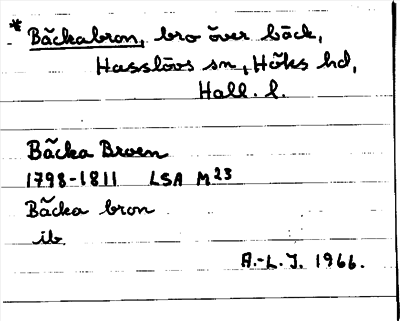 * Bäckabron, bro över bäck,
Hasslövs sn, Höks hd,
Hall. l.
Bäcka Broen
1798-1811 LSA M23
Bäcka bron
ib.
A.-L.J. 1966.